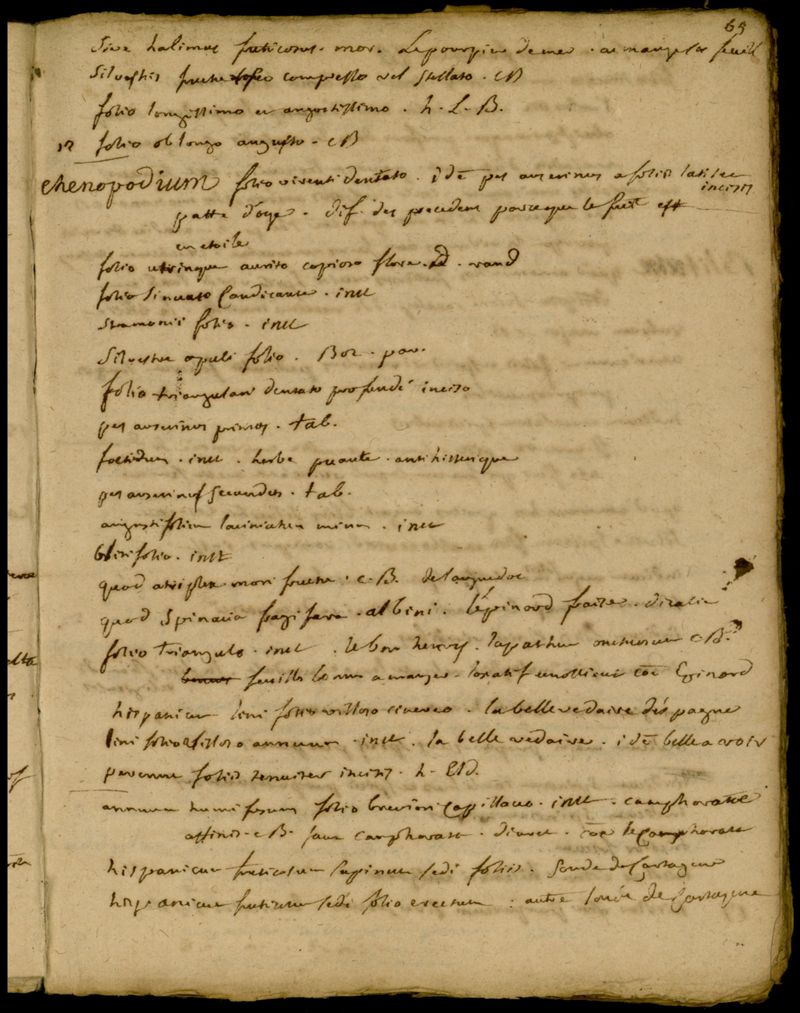 65
sive halimus fruticosus. mor. Le pourpier de mer. a manger
silvestris fructu compresso vel stellato. CB
folio longissimo et angustissimo. h. L. B.
12 folio oblongo angusto. CB
chenopodium folio sinuati dentato. idē pes anserinus a foliis
incisis
patte d'oye. dif. des precedens parceque le fruit est
en etoile
folio utrinque aurito copioso flore. rand
folio sinuato candicante. inst
stramonii folio. inst
silvestre opuli folio. Boe. par.
folio triangulari dentato profunde inciso
pes anserinus primus. tab.
foetidum. inst. herbe puante. antihisterique
pes anserinus secundus. tab.
angustifolium laciniatum minus. inst
bliti folio. inst
quod atriplex mori fructu. C. B. de languedoc
quod spinacia fragifera. albini. l'epinard fraise. d'italie
folio triangulo. inst. le bon henry. lapathum unctuosum CB.
feuilles bonnes a manger. laxatif emollient coē Epinard
hispanicum lini folio villoso cinereo. la bellevedaire d'espagne
lini folio villoso annuum. inst. la belle vedaire. idē belle a voir
perenne foliis tenuiter incisis. h. Eld.
annuum humifusum folio breviori capillaceo. inst. camphoratae
affinis. CB. sans camphorata. diuret. coē le camphorata
hispanicum fruticosum supinum sedi foliis. Soude de Cartagene
hispanicum fruticosum sedi folio erectum. autre soude de Cartagene